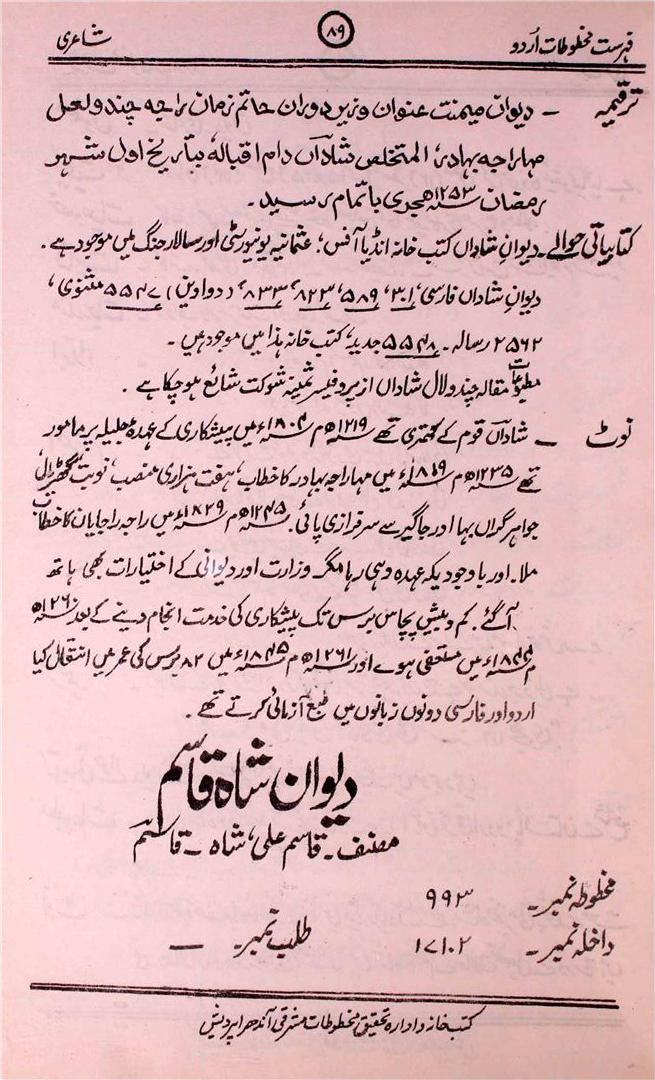 فہرست مخطوطات اُردو ۸۹ شاعری
ترقیمہ ۔ دیوان میمنت عنوان وزیرِ دوران حاتم زمان راجہ چندو لعل
مہاراجہ بہادر، المتخلص شاداں دام اقبالہ، بتاریخ اول شہر
رمضان ۱۲۵۳ھ ہجری باتمام رسید۔
کتابیاتی حوالے۔ دیوانِ شاداں کتب خانہ انڈیا آفس، عثمانیہ یونیورسٹی اور سالار جنگ میں موجود ہے۔
دیوانِ شاداں فارسی، ۳۰۱، ۵۸۹، ۸۲۳، ۸۳۳، (دواوین) ۵۵۴۷ مثنوی،
۲۵۶۲ رسالہ۔ ۵۵۴۸ جدید، کتب خانہ ہذا میں موجود ہیں۔
مطبوعات مقالہ چندو لال شاداں از پروفیسر ثمینہ شوکت شائع ہو چکا ہے۔
نوٹ ۔ شاداں قوم کے کھتری تھے ۱۲۱۹ھ م ۱۸۰۴ء میں پیشکاری کے عہدہ جلیلہ پر مامور
تھے ۱۲۳۵ھ م ۱۸۱۹ء میں مہاراجہ بہادر کا خطاب، ہفت ہزاری منصب، نوبت، گھڑیال،
جواہر گراں بہا اور جاگیر سے سرفرازی پائی۔ ۱۲۴۵ھ م ۱۸۲۹ء میں راجہ راجایان کا خطاب
ملا۔ اور باوجودیکہ عہدہ وہی رہا مگر وزارت اور دیوانی کے اختیارات بھی ہاتھ
آ گئے۔ کم و بیش پچاس برس تک پیشکاری کی خدمت انجام دینے کے بعد ۱۲۶۰ھ
م ۱۸۴۴ء میں مستعفی ہوے اور ۱۲۶۱ھ م ۱۸۴۵ء میں ۸۲ برس کی عمر میں انتقال کیا
اردو اور فارسی دونوں زبانوں میں طبع آزمائی کرتے تھے۔
دیوان شاہ قاسم
مصنف۔ قاسم علی، شاہ ۔ قاسم
مخطوطہ نمبر۔ ۹۹۳
داخلہ نمبر۔ ۱۷۱۰۲ طلب نمبر۔ ــــ
کتب خانہ و ادارہ تحقیق مخطوطات مشرقی آندھرا پردیش